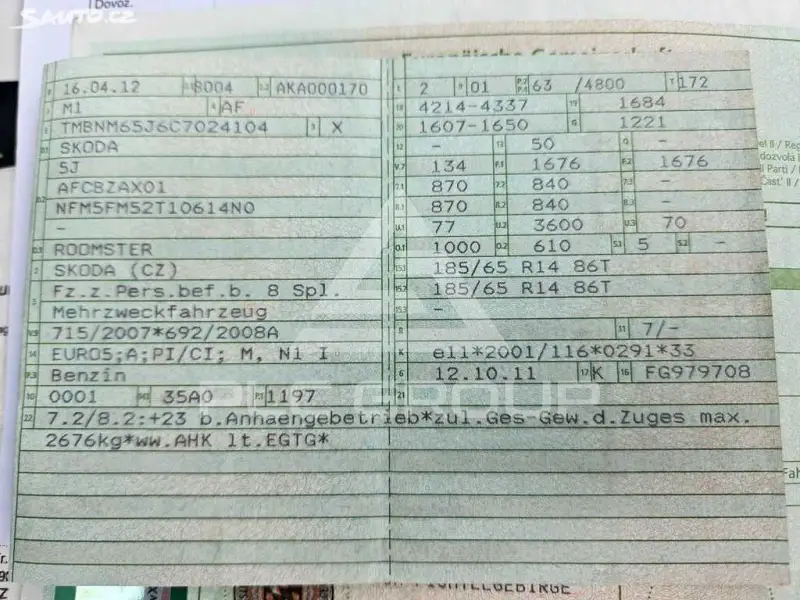 Dovoz.
SAUTO.CZ
Europäische Gemeinschaft
B 16.04.12 2.1 8004 2.2 AKA000170
J M1 4 AF
E TMBNM65J6C7024104 3 X
D.1 SKODA
D.2 5J
AFCBZAX01
NFM5FM52T10614N0
-
D.3 ROOMSTER
2 SKODA (CZ)
5 Fz.z.Pers.bef.b. 8 Spl.
Mehrzweckfahrzeug
V.9 715/2007*692/2008A
14 EURO5;A;PI/CI; M, N1 I
P.3 Benzin
10 0001 14.1 35A0 P.1 1197
22 7.2/8.2:+23 b.Anhaengebetrieb*zul.Ges-Gew.d.Zuges max.
2676kg*ww.AHK lt.EGTG*
L 2 9 01 P.2 P.4 63 /4800 T 172
18 4214-4337 19 1684
20 1607-1650 G 1221
12 - 13 50 Q -
V.7 134 F.1 1676 F.2 1676
7.1 870 7.2 840 7.3 -
8.1 870 8.2 840 8.3 -
U.1 77 U.2 3600 U.3 70
O.1 1000 O.2 610 S.1 5 S.2 -
15.1 185/65 R14 86T
15.2 185/65 R14 86T
15.3 -
R 11 7/-
K e11*2001/116*0291*33
6 12.10.11 17 K 16 FG979708
21
GROUP
FICHTELGEBIRGE